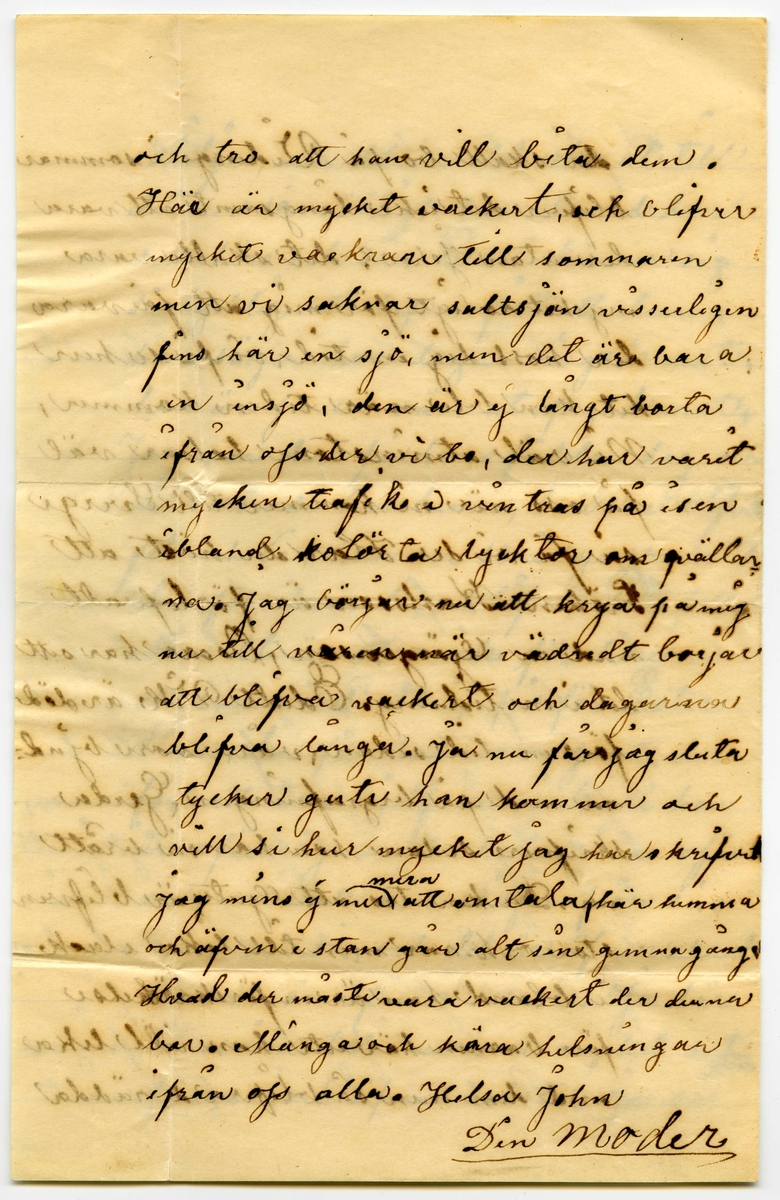 och tro att han vill bita dem.
Här är mycket vackert, och blifver
mycket vackrare till sommaren
men vi saknar saltsjön visserligen
fins här en sjö, men det är bara
en insjö, den är ej långt borta
ifrån oss der vi bo, der har varit
mycken trafik i vintras på isen
ibland kolörta lycktor om qvällar-
na. Jag börjar nu att krya på mig
nu till våren när vädredt borjar
att blifva vackert och dagarna
blifva långa. Ja nu får jag sluta
tycker han kommer och
vill se hur mycket jag har skrifvit
jag mins ej mera att omtala, här hemma
och äfven i stan går alt sin gemna gång.
Hvad der måste vara vackert der denna
bor. Många och kära helsningar
ifrån oss alla. Helsa John
Din Moder